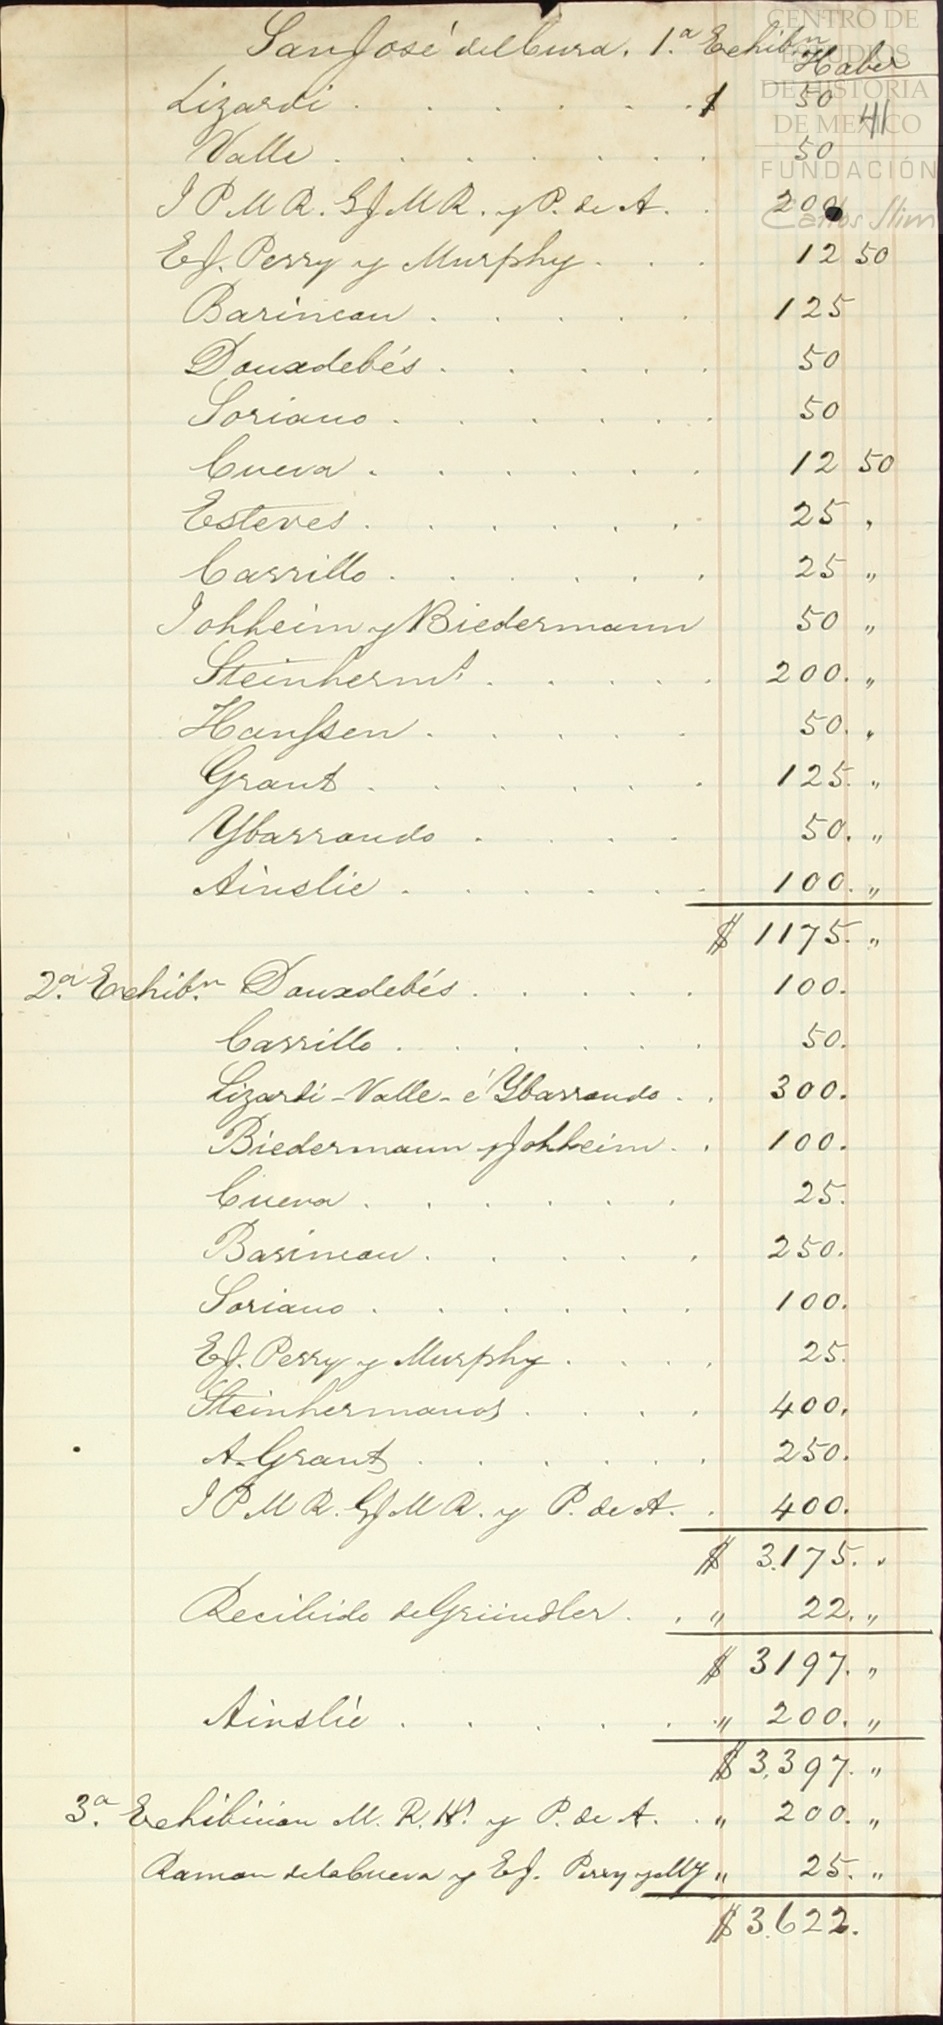 San José del Cura. 1.ª Echib.n
Haber
CENTRO DE
ESTUDIOS
DE HISTORIA
DE MÉXICO
FUNDACIÓN
Carlos Slim
41
Lizardi . . . . . . . $ 50
Valle . . . . . . . 50
J P M R. G J M R. y P. de A. . 200
E J. Perry y Murphy . . . 12 50
Barineau . . . . . 125
Douxdebés . . . . . 50
Soriano . . . . . . 50
Cueva . . . . . . 12 50
Esteves . . . . . . 25 "
Carrillo . . . . . . 25 "
Johheim y Biedermann 50 "
Steinherm.s . . . . . 200. "
Hanssen . . . . . 50. "
Grant . . . . . . 125. "
Ybarrondo . . . . 50. "
Ainslie . . . . . . 100. "
$ 1175. "
2.ª Echib.n Douxdebés . . . . . 100.
Carrillo . . . . . . 50.
Lizardi - Valle - é Ybarrondo . . 300.
Biedermann y Johheim . . 100.
Cueva . . . . . . 25.
Barineau . . . . . 250.
Soriano . . . . . . 100.
E J. Perry y Murphy . . . . 25.
Steinhermanos . . . . 400.
A. Grant . . . . . . 250.
J P M R. G J M R. y P. de A. . 400.
$ 3.175. "
Recibido de Gründler . . " 22. "
$ 3197. "
Ainslie . . . . . . " 200. "
$ 3.397. "
3.ª Echibicion M. R. H.s y P. de A. . " 200. "
Ramon de la Cueva y E J. Perry y My " 25. "
$ 3.622.